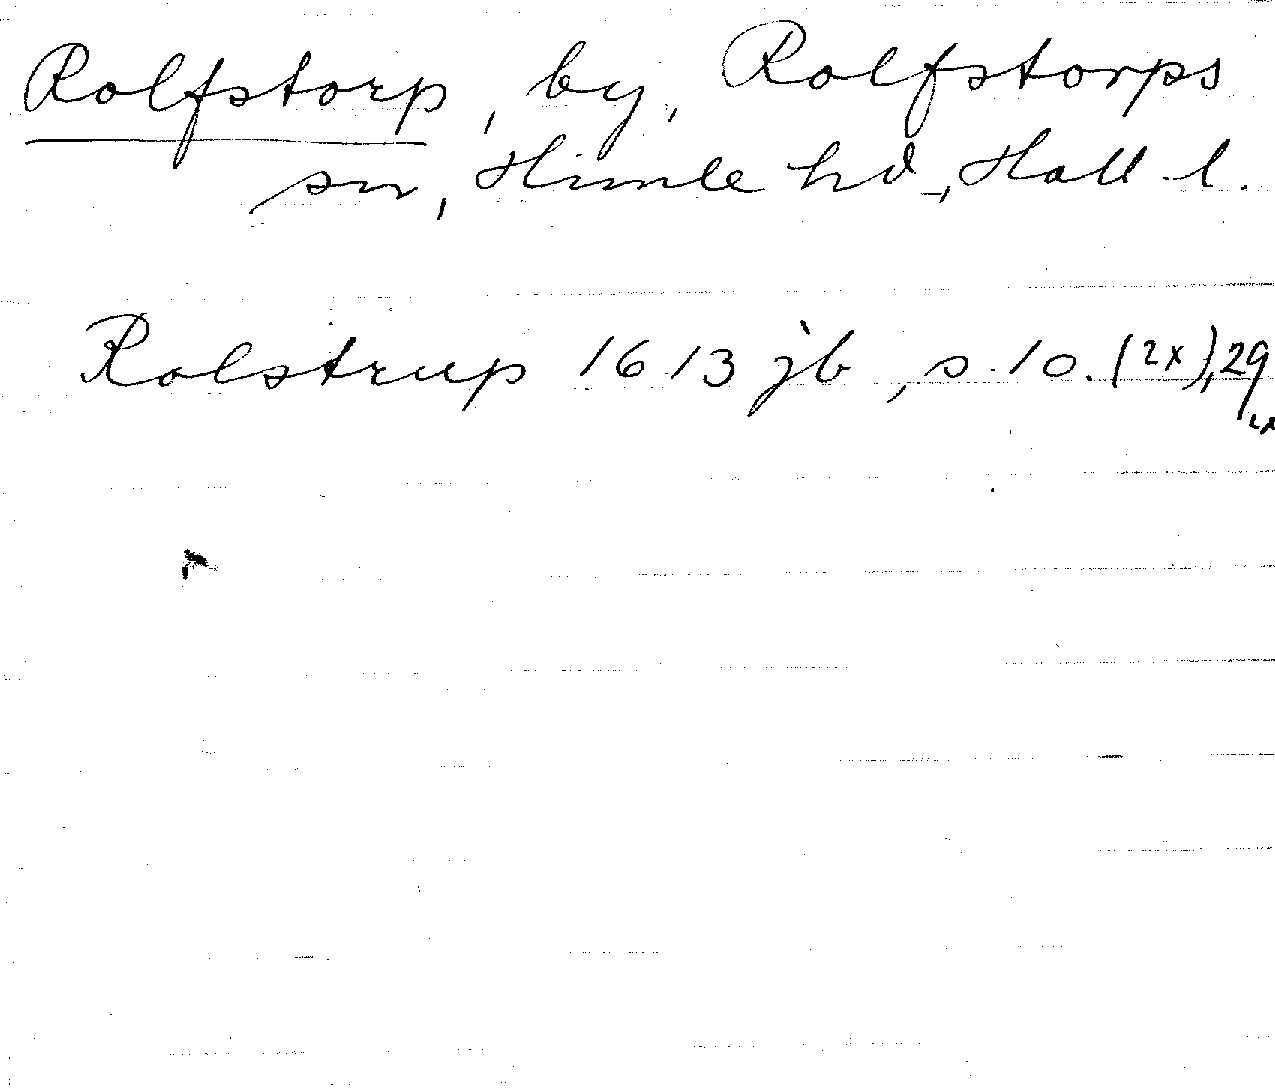 Rolfstorp, by, Rolfstorps
sn, Himle hd, Hall. l.
Rolstrup 1613 jb, s. 10. (2x), 29
2x